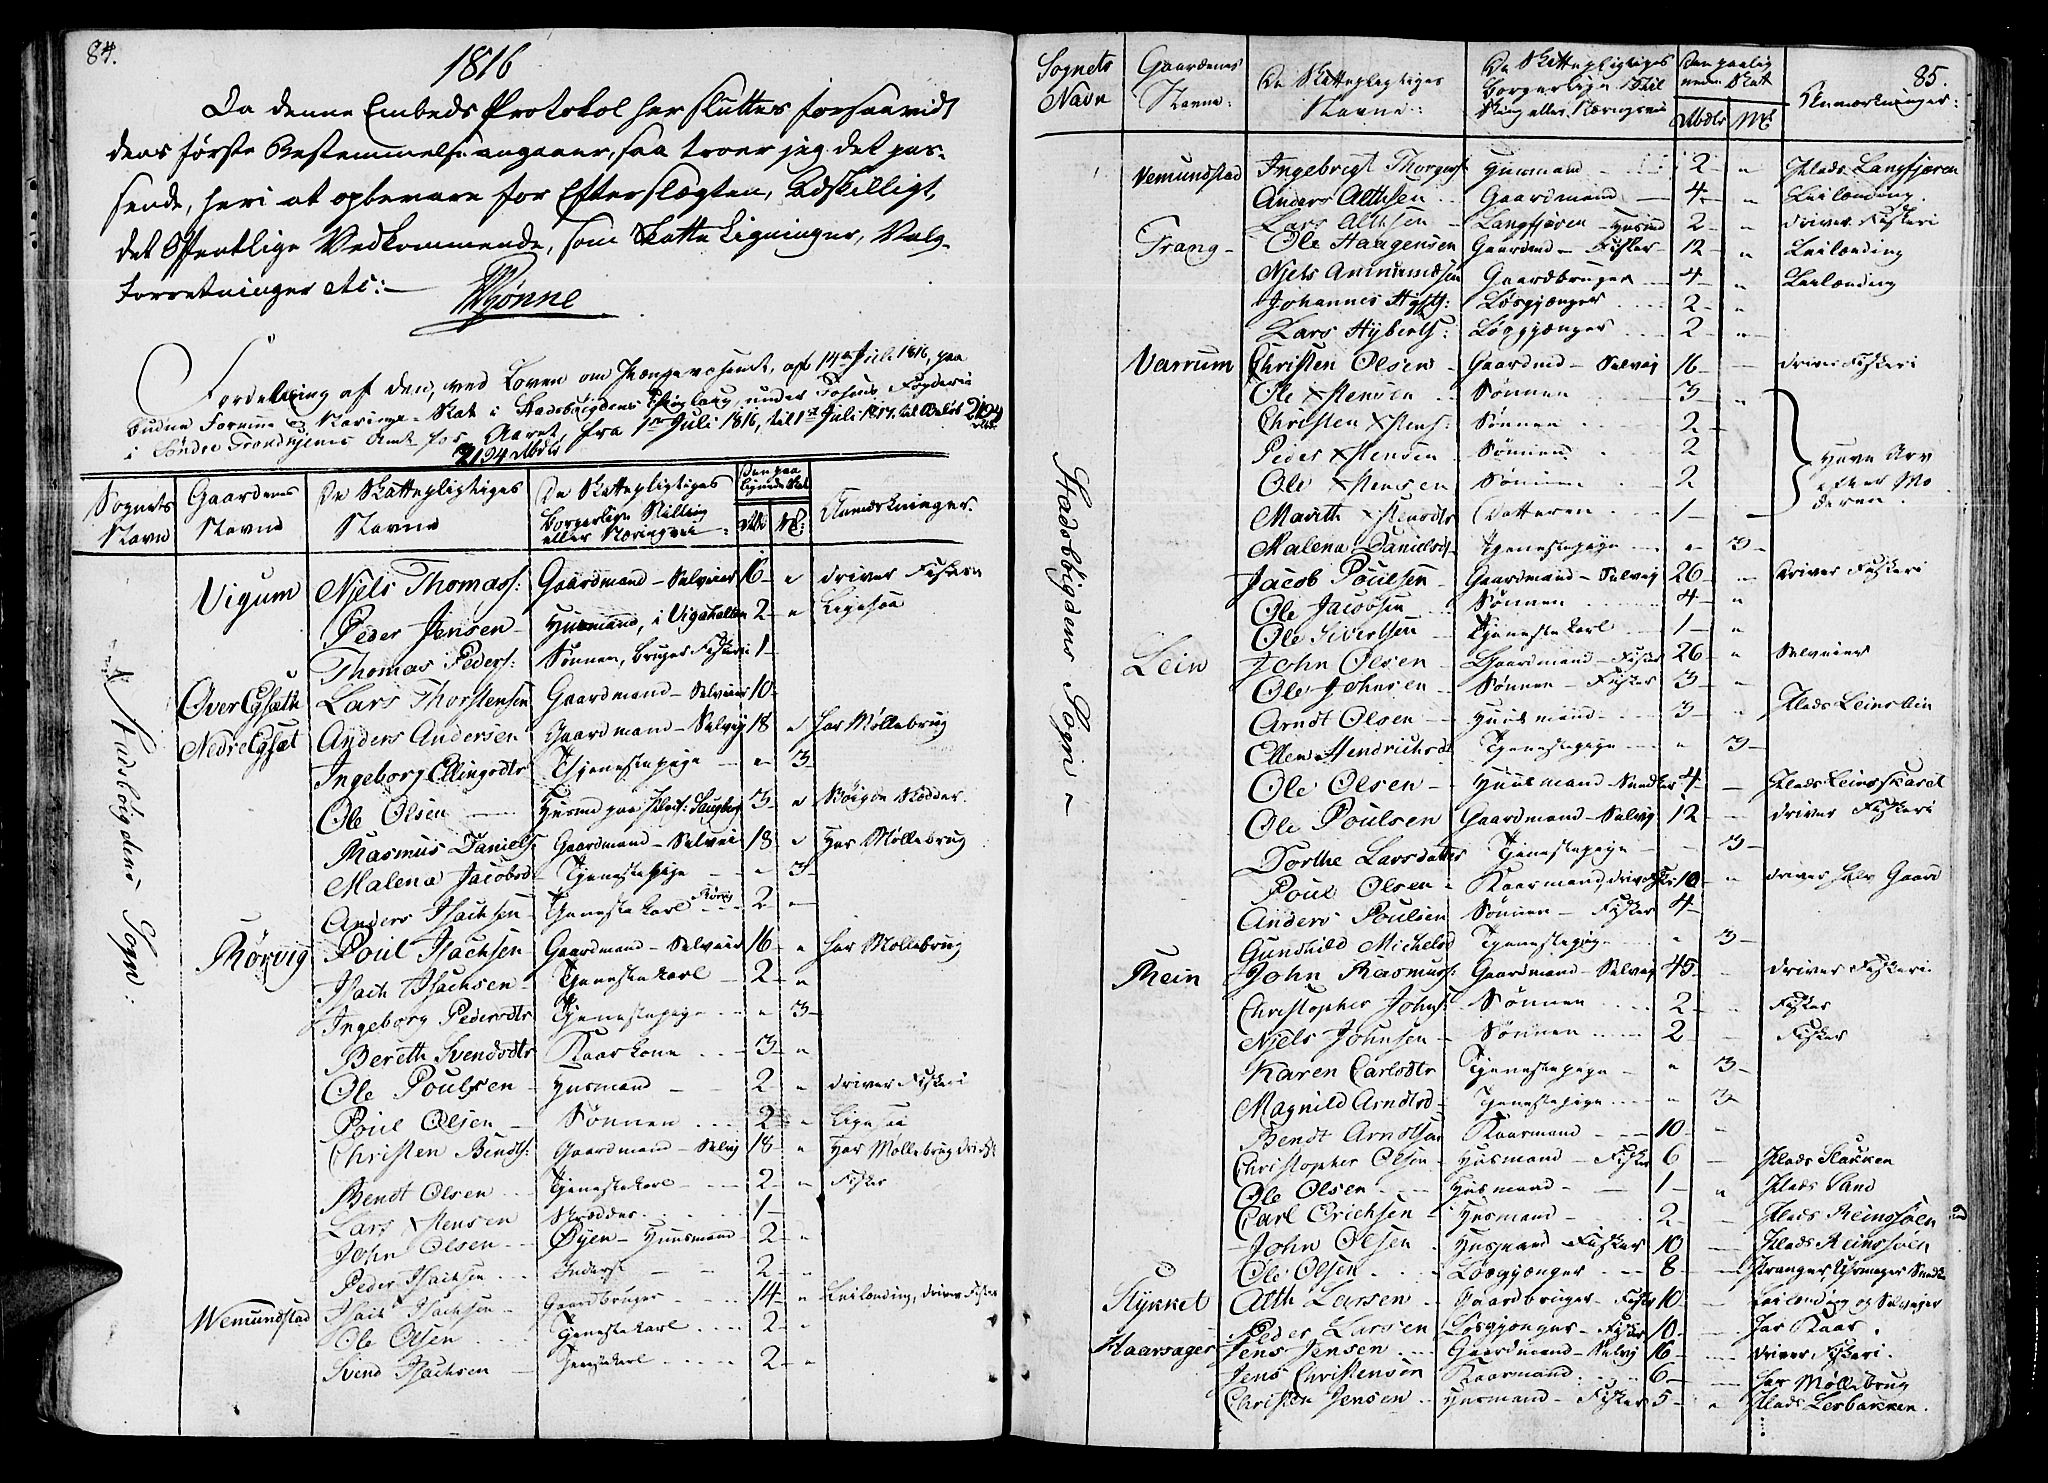 84.
1816
Da denne Embeds Protokol her sluttes forsaavidt
dens første Bestemmelse angaaer, saa troer jeg det pas-
sende, heri at opbevare for Efterslægten, Adskilligt,
det Offentlige Vedkommende, som Skatte Ligninger, Valg-
forretninger etc:
Fordeling af den, ved Loven om Pengevæsenet, af 14de Juli 1816, paa
budne Formue og Nærings-Skat i Stadsbøigdens Thinglaug, under Fosens Fogderie
i Søndre Trondhjems Amt for Aaret, fra 1ste Juli 1816, til 1ste Juli 1817, til Beløb 2194
2194 Rbdlr
Sognets Navn | Gaardenes Navne | De Skattepligtiges Navne | De Skattepligtiges Borgerlige Stilling eller Næringsvei | Den paa lignede Skat | Anmærkninger.
Stadsbøigdens Sogn:
Vigum | Njels Thomass: | Gaardmand - Selveier | 16 | " | driver Fiskeri
Peder Jensen | Husmand, i Vigahallen | 2 | " | Ligesaa
Thomas Peders: | Sønnen, bruger Fiskerie | 1
Over Eysæth | Lars Thorstensen | Gaardmand - Selveier | 10
Nedre Eysæt | Anders Andersen | Gaardmand - Selvej | 18 | " | har Møllebrug
Ingeborg Ellingsdtr | Tjenestepige | " | 3
Ole Olsen | Husmd paa Plads: | 3 | " | Bøigde Skædder
Rasmus Daniels | Gaardmand - Selvei | 18 | " | Har Møllebrug
Malena Jacobsd | Tjenestepige | " | 3
Anders Isachsen | Tjenestekarl | 2 | "
Rørvig | Poul Isachsen | Gaardmand - Selveier | 16 | " | har Møllebrug
Isach Isachsen | Tjenestekarl | 2 | "
Ingeborg Pedersdtr | Tjenestepige | " | 3
Bereth Svendsdtr | Kaarkone | 3 | "
Ole Poulsen | Husmand | 2 | " | driver Fiskeri
Poul Olsen | Sønnen | 2 | " | Ligesaa
Christen Bendts: | Gaardmand - Selvej | 18 | " | Har Møllebrug
Bendt Olsen | Tjenestekarl | 2 | " | Fisker
Lars Xstensen | Skrædder | 1
John Olsen | Øyen - Huusmand | 2 | "
Peder Isachsen | Inderst | 2 | "
Wemundstad | Isach Isachsen | Gaardbruger | 14 | " | Leilænding, driver Fiskeri
Ole Olsen | Tjenestekarl | 2 | "
Svend Isachsen | Tjenestekarl | 2 | "
85.
Sognets Navn | Gaardenes Navne: | De Skattepligtiges Navne: | De Skattepligtiges Borgerlige Stilling eller Næringsvei | Den paalignede Skat | Rbdlr | Mk | Anmærkninger:
Stadsbøigdens Sogn
Vemundstad | Ingebrigt Thorgers: | Husmand | 2 | " | Plads Langfjæren
Anders Althsen | Gaardmand | 4 | " | Leilænding.
Lars Althsen | Langfjæren - Husmd | 2 | " | driver Fiskeri
Trang | Ole Haagensen | Gaardmd - Fisker | 12 | " | Leilænding
Njels Ammundsen | Gaardbruger | 4 | " | Leilænding
Johannes | Løsgjænger | 2 | "
Lars Hyberts: | Løsgjænger | 2 | "
Varrum | Christen Olsen | Gaardmd - Selvej | 16 | driver Fiskeri
Ole Xstensen | Sønnen | 3 | "
Christen Xstens: | Sønnen | 2
Peder Xstensen | Sønnen | 2
Ole Xstensen | Sønnen | 2
Marith Xstensdtr | Datteren | 1
Have Arv
efter Mo
deren.
Malena Danielsdtr | Tjenestepige | " | 3
Jacob Poulsen | Gaardmand - Selvej | 26 | driver Fiskeri
Ole Jacobsen | Sønnen | 4 | "
Ole Sivertsen | Tjenestekarl | 1 | "
Lein | John Olsen | Gaardmand - Fisker | 26 | " | Selveier
Ole Johnsen | Sønnen - Fisker | 3 | "
Arndt Olsen | Huusmand | 3 | " | Plads Leinslien
Ellen Hendrichsdt | Tjenestepige | " | 3
Ole Olsen | Huusmand - Snedker | 4 | Plads Leinsskaret
Ole Poulsen | Gaardmand - Selvej | 12 | driver Fiskeri
Dorthe Larsdatter | Tjenestepige | 3
Poul Olsen | Kaarmand, | 10 | " | driver halv Gaard
Anders Poulsen | Sønnen - Fisker | 4
Gunhild Michelsd | Tjenestepige | " | 3
Rein | John Rasmuss: | Gaardmand - Selvej | 45 | driver Fiskeri.
Christopher Johns: | Sønnen | 2 | " | Fisker
Njels Johnsen | Sønnen | 2 | Fisker
Karen Carlsdtr | Tjenestepige | " | 3
Magnild Arndtsd | Tjenestepige | " | 3
Bendt Arndtsen | Kaarmand | 10 | "
Christopher Olsen | Husmand - Fisker | 6 | Plads Slakken
Ole Olsen | Husmand | 1 | " | Plads Sand
Carl Erichsen | Husmand | 2 | Plads Reinssøen
John Olsen | Husmand Fisker | 10 | Plads Reinssøen
Ole Olsen | Løsgjænger | 8
Stykket | Alth Larsen | Gaardbruger - Fisker | 10 | Leilænding og Selvejer
Peder Larsen | Løsgjænger - Fisker | 10 | har Kaar.
Haarsager | Jens Jensen | Gaardmand - Selvej | 16 | driver Fiskeri.
Jens Christensen | Kaarmand | 6 | har Møllebrug
Christen Jensen | Husmand - Fisker | 5 | " | Plads Lerbakken.